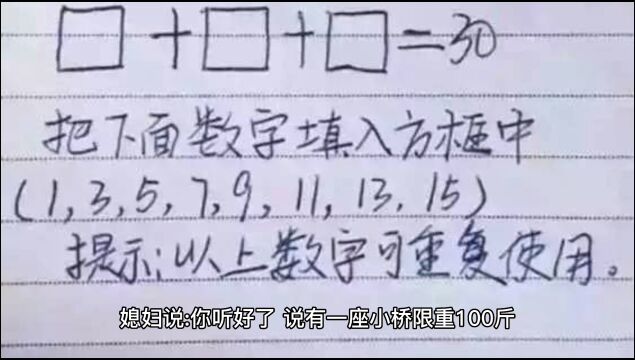 □+□+□=30
把下面数字填入方框中
(1,3,5,7,9,11,13,15)
提示:以上数字可重复使用。
媳妇说:你听好了 说有一座小桥限重100斤